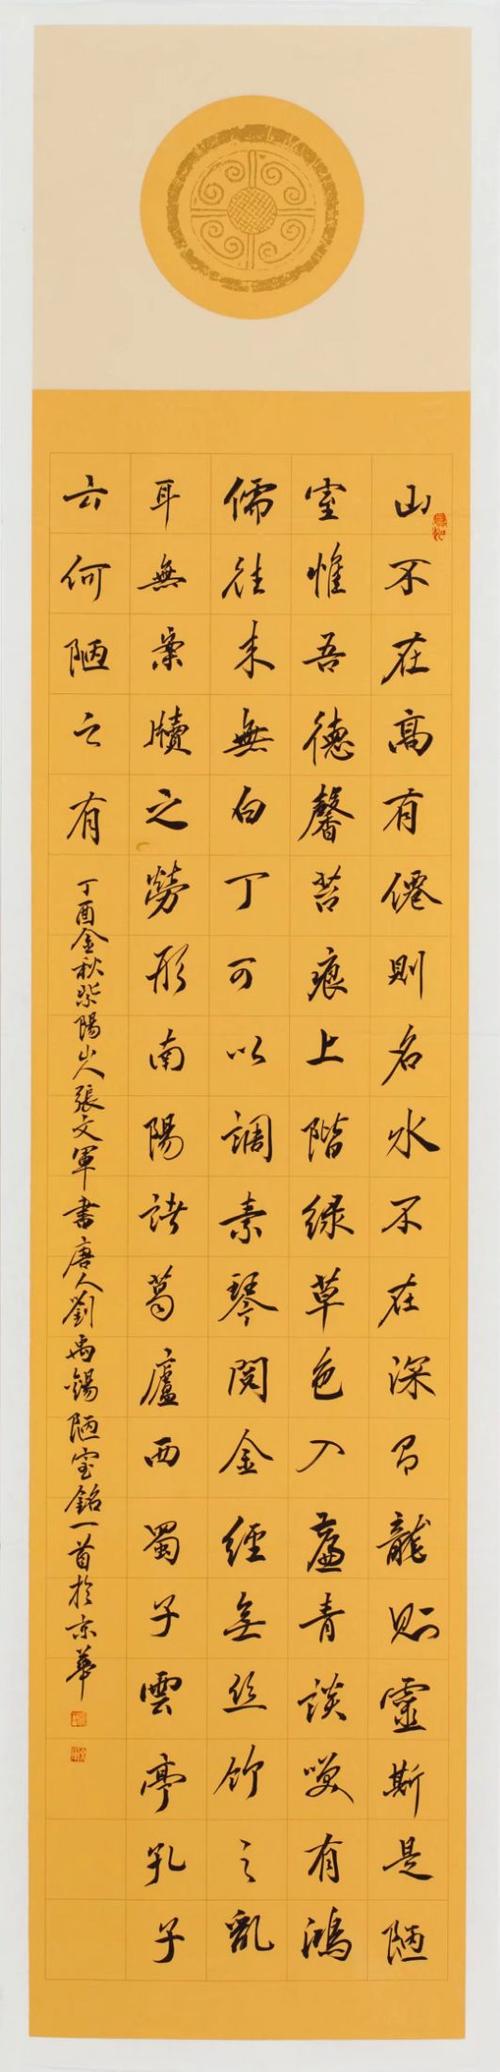 山不在高有僊則名水不在深有龍則靈斯是陋
室惟吾德馨苔痕上階緑草色入簾青談咲有鴻
儒往来無白丁可以調素琴閱金經無絲竹之亂
耳無案牘之勞形南陽諸葛廬西蜀子雲亭孔子
云何陋之有
丁酉金秋紫陽山人張文軍書唐人劉禹錫陋室銘一首於京華